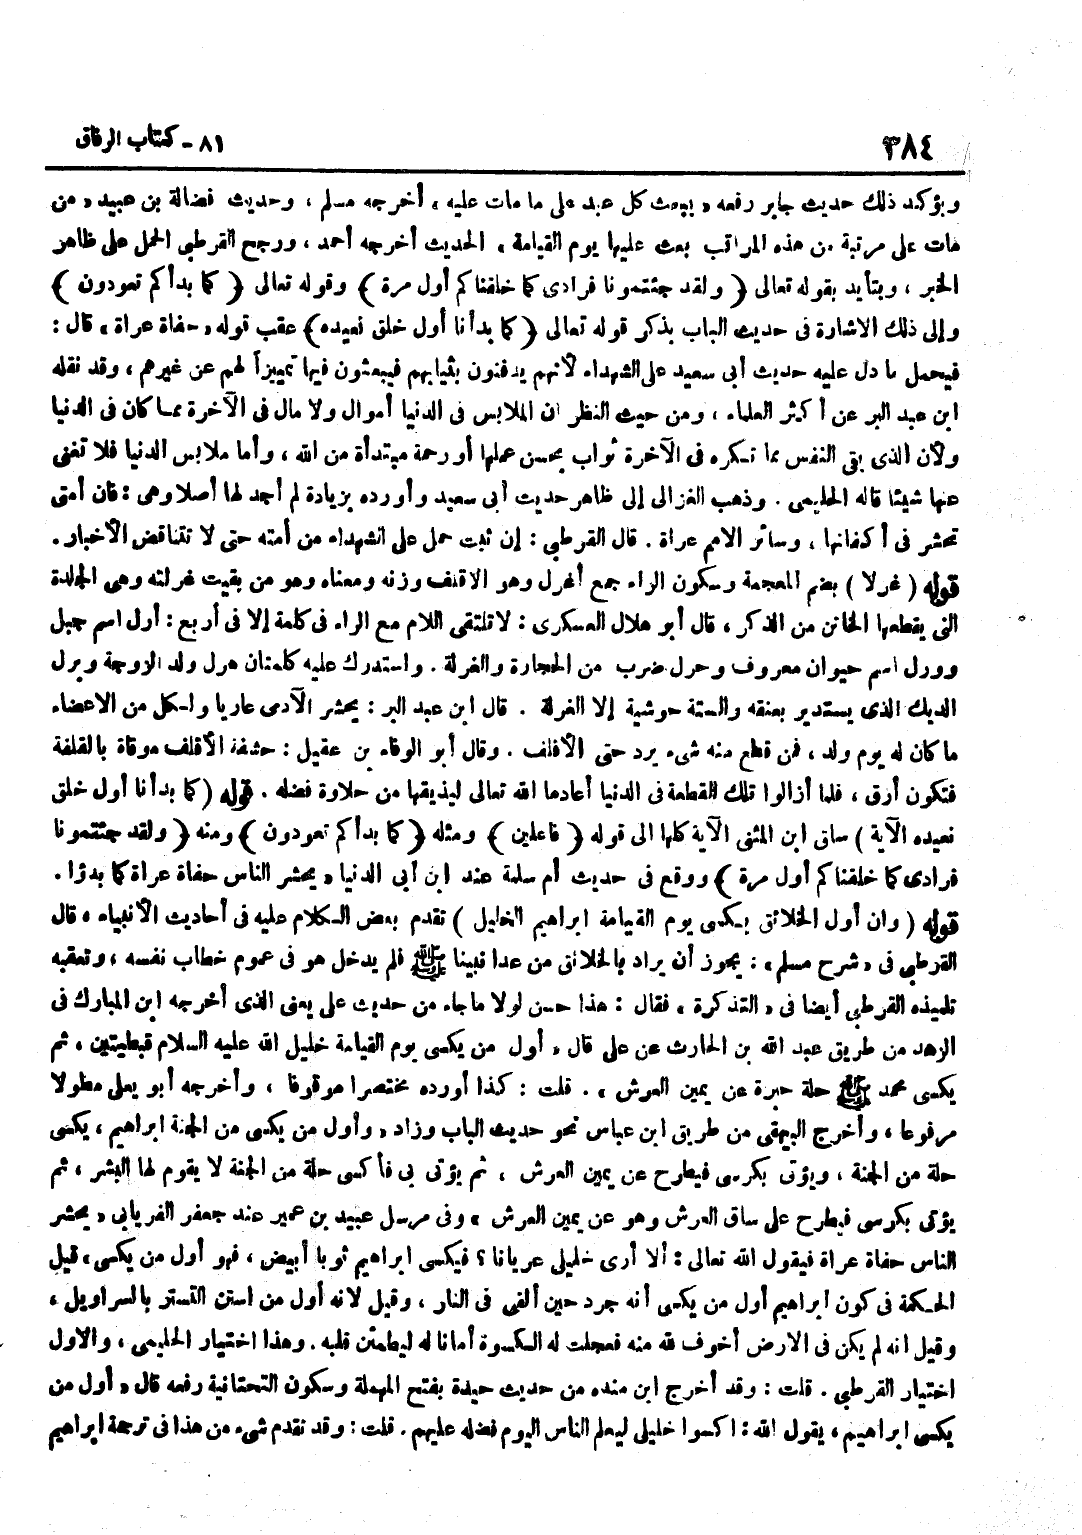 ٣٨٤
٨١ - كتاب الرقاق
ويؤكد ذلك حديث جابر رفعه « يبعث كل عبد على ما مات عليه » أخرجه مسلم ، وحديث فضالة بن عبيد « من
مات على مرتبة من هذه المراتب بعث عليها يوم القيامة » الحديث أخرجه أحمد ، ورجح القرطبي الحمل على ظاهر
الخبر ، ويتأيد بقوله تعالى ﴿ ولقد جئتمونا فرادى كما خلقناكم أول مرة ﴾ وقوله تعالى ﴿ كما بدأكم تعودون ﴾
وإلى ذلك الاشارة فى حديث الباب بذكر قوله تعالى ﴿ كما بدأنا أول خلق نعيده ﴾ عقب قوله « حفاة عراة » قال :
فيحمل ما دل عليه حديث أبى سعيد على الشهداء لأنهم يدفنون بثيابهم فيبعثون فيها تمييزاً لهم عن غيرهم ، وقد نقله
ابن عبد البر عن أكثر العلماء ، ومن حيث النظر ان الملابس فى الدنيا أموال ولا مال فى الآخرة مما كان فى الدنيا
ولأن الذى يقى النفس مما تكره فى الآخرة ثواب بحسن عملها أو رحمة مبتدأة من الله ، وأما ملابس الدنيا فلا تغنى
عنها شيئا قاله الحليمى . وذهب الغزالى إلى ظاهر حديث أبى سعيد وأورده بزيادة لم أجد لها أصلا وهى : فان أمتى
تحشر فى أكفانها ، وسائر الامم عراة . قال القرطبى : إن ثبت حمل على الشهداء من أمته حتى لا تتناقض الأخبار .
قوله ( غرلا ) بضم المعجمة وسكون الراء جمع أغرل وهو الاقلف وزنه ومعناه وهو من بقيت غرلته وهى الجلدة
التى يقطعها الخاتن من الذكر ، قال أبو هلال العسكرى : لا تلتقى اللام مع الراء فى كلمة إلا فى أربع : أرل اسم جبل
وورل اسم حيوان معروف وحرل ضرب من الحجارة والغرلة . واستدرك عليه كلمتان هرل ولد الزوجة وبرل
الديك الذى يستدير بعنقه والستة حوشية إلا الغرلة . قال ابن عبد البر : يحشر الآدمى عاريا ولكل من الاعضاء
ما كان له يوم ولد ، فمن قطع منه شىء يرد حتى الأقلف . وقال أبو الوفاء بن عقيل : حشفة الأقلف موقاة بالقلفة
فتكون أرق ، فلما أزالوا تلك القطعة فى الدنيا أعادها الله تعالى ليذيقها من حلاوة فضله . قوله ( كما بدأنا أول خلق
نعيده الآية ) ساق ابن المثنى الآية كلها الى قوله ﴿ فاعلين ﴾ ومثله ﴿ كما بدأكم تعودون ﴾ ومنه ﴿ ولقد جئتمونا
فرادى كما خلقناكم أول مرة ﴾ ووقع فى حديث أم سلمة عند ابن أبى الدنيا « يحشر الناس حفاة عراة كما بدؤا .
قوله ( وان أول الخلائق يكسى يوم القيامة ابراهيم الخليل ) تقدم بعض الكلام عليه فى أحاديث الأنبياء ، قال
القرطبى فى « شرح مسلم » : يجوز أن يراد بالخلائق من عدا نبينا ﷺ فلم يدخل هو فى عموم خطاب نفسه ، وتعقبه
تلميذه القرطبى أيضا فى « التذكرة » فقال : هذا حسن لولا ما جاء من حديث على يعنى الذى أخرجه ابن المبارك فى
الزهد من طريق عبد الله بن الحارث عن على قال « أول من يكسى يوم القيامة خليل الله عليه السلام قبطيتين ، ثم
يكسى محمد ﷺ حلة حبرة عن يمين العرش » . قلت : كذا أورده مختصرا موقوفا ، وأخرجه أبو يعلى مطولا
مرفوعا ، وأخرج البيهقى من طريق ابن عباس نحو حديث الباب وزاد « وأول من يكسى من الجنة ابراهيم ، يكسى
حلة من الجنة ، ويؤتى بكرسى فيطرح عن يمين العرش ، ثم يؤتى بى فأكسى حلة من الجنة لا يقوم لها البشر ، ثم
يؤتى بكرسى فيطرح على ساق العرش وهو عن يمين العرش » وفى مرسل عبيد بن عمير عند جعفر الفريابى « يحشر
الناس حفاة عراة فيقول الله تعالى : ألا أرى خليلى عريانا ؟ فيكسى ابراهيم ثوبا أبيض ، فهو أول من يكسى » قيل
الحكمة فى كون ابراهيم أول من يكسى أنه جرد حين ألقى فى النار ، وقيل لانه أول من استن التستر بالسراويل ،
وقيل انه لم يكن فى الارض أخوف لله منه فعجلت له الكسوة أمانا له ليطمئن قلبه . وهذا اختيار الحليمى ، والاول
اختيار القرطبى . قلت : وقد أخرج ابن منده من حديث حيدة بفتح المهملة وسكون التحتانية رفعه قال « أول من
يكسى ابراهيم ، يقول الله : اكسوا خليلى ليعلم الناس اليوم فضله عليهم . قلت : وقد تقدم شىء من هذا فى ترجمة ابراهيم